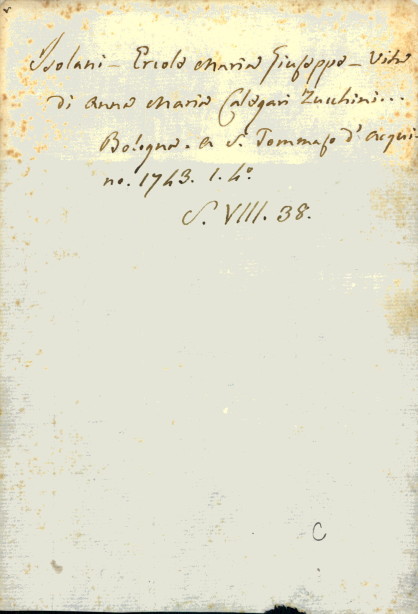 Isolani - Ercole Maria Giuseppe - Vita
di Anna Maria Calegari Zucchini...
Bologna. a S. Tommaso d'Acqui-
no. 1743. 1. 4º.
S. VIII. 38.
C